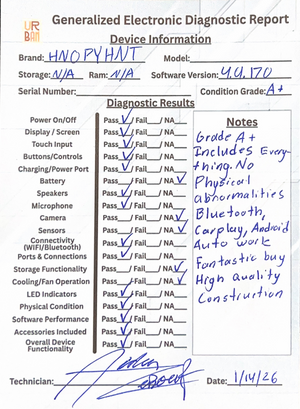 UR
BAN
Generalized Electronic Diagnostic Report
Device Information
Brand: HNOPYHNT Model:
Storage: N/A Ram: N/A Software Version: 4.4.170
Serial Number: Condition Grade: A+
Diagnostic Results
Power On/Off Pass ✓/ Fail / NA
Display / Screen Pass ✓/ Fail / NA
Touch Input Pass ✓/ Fail / NA
Buttons/Controls Pass ✓/ Fail / NA
Charging/Power Port Pass ✓/ Fail / NA
Battery Pass / Fail / NA ✓
Speakers Pass ✓/ Fail / NA
Microphone Pass ✓/ Fail / NA
Camera Pass / Fail / NA ✓
Sensors Pass ✓/ Fail / NA
Connectivity (WIFI/Bluetooth) Pass ✓/ Fail / NA
Ports & Connections Pass ✓/ Fail / NA
Storage Functionality Pass / Fail / NA ✓
Cooling/Fan Operation Pass / Fail / NA ✓
LED Indicators Pass ✓/ Fail / NA
Physical Condition Pass ✓/ Fail / NA
Software Performance Pass ✓/ Fail / NA
Accessories Included Pass ✓/ Fail / NA
Overall Device Functionality Pass ✓/ Fail / NA
Notes
Grade A+
Includes Every-
thing. No
Physical
abnormalities
Bluetooth,
Carplay, Android
Auto work
Fantastic buy
High quality
Construction
Technician: Date: 1/14/26